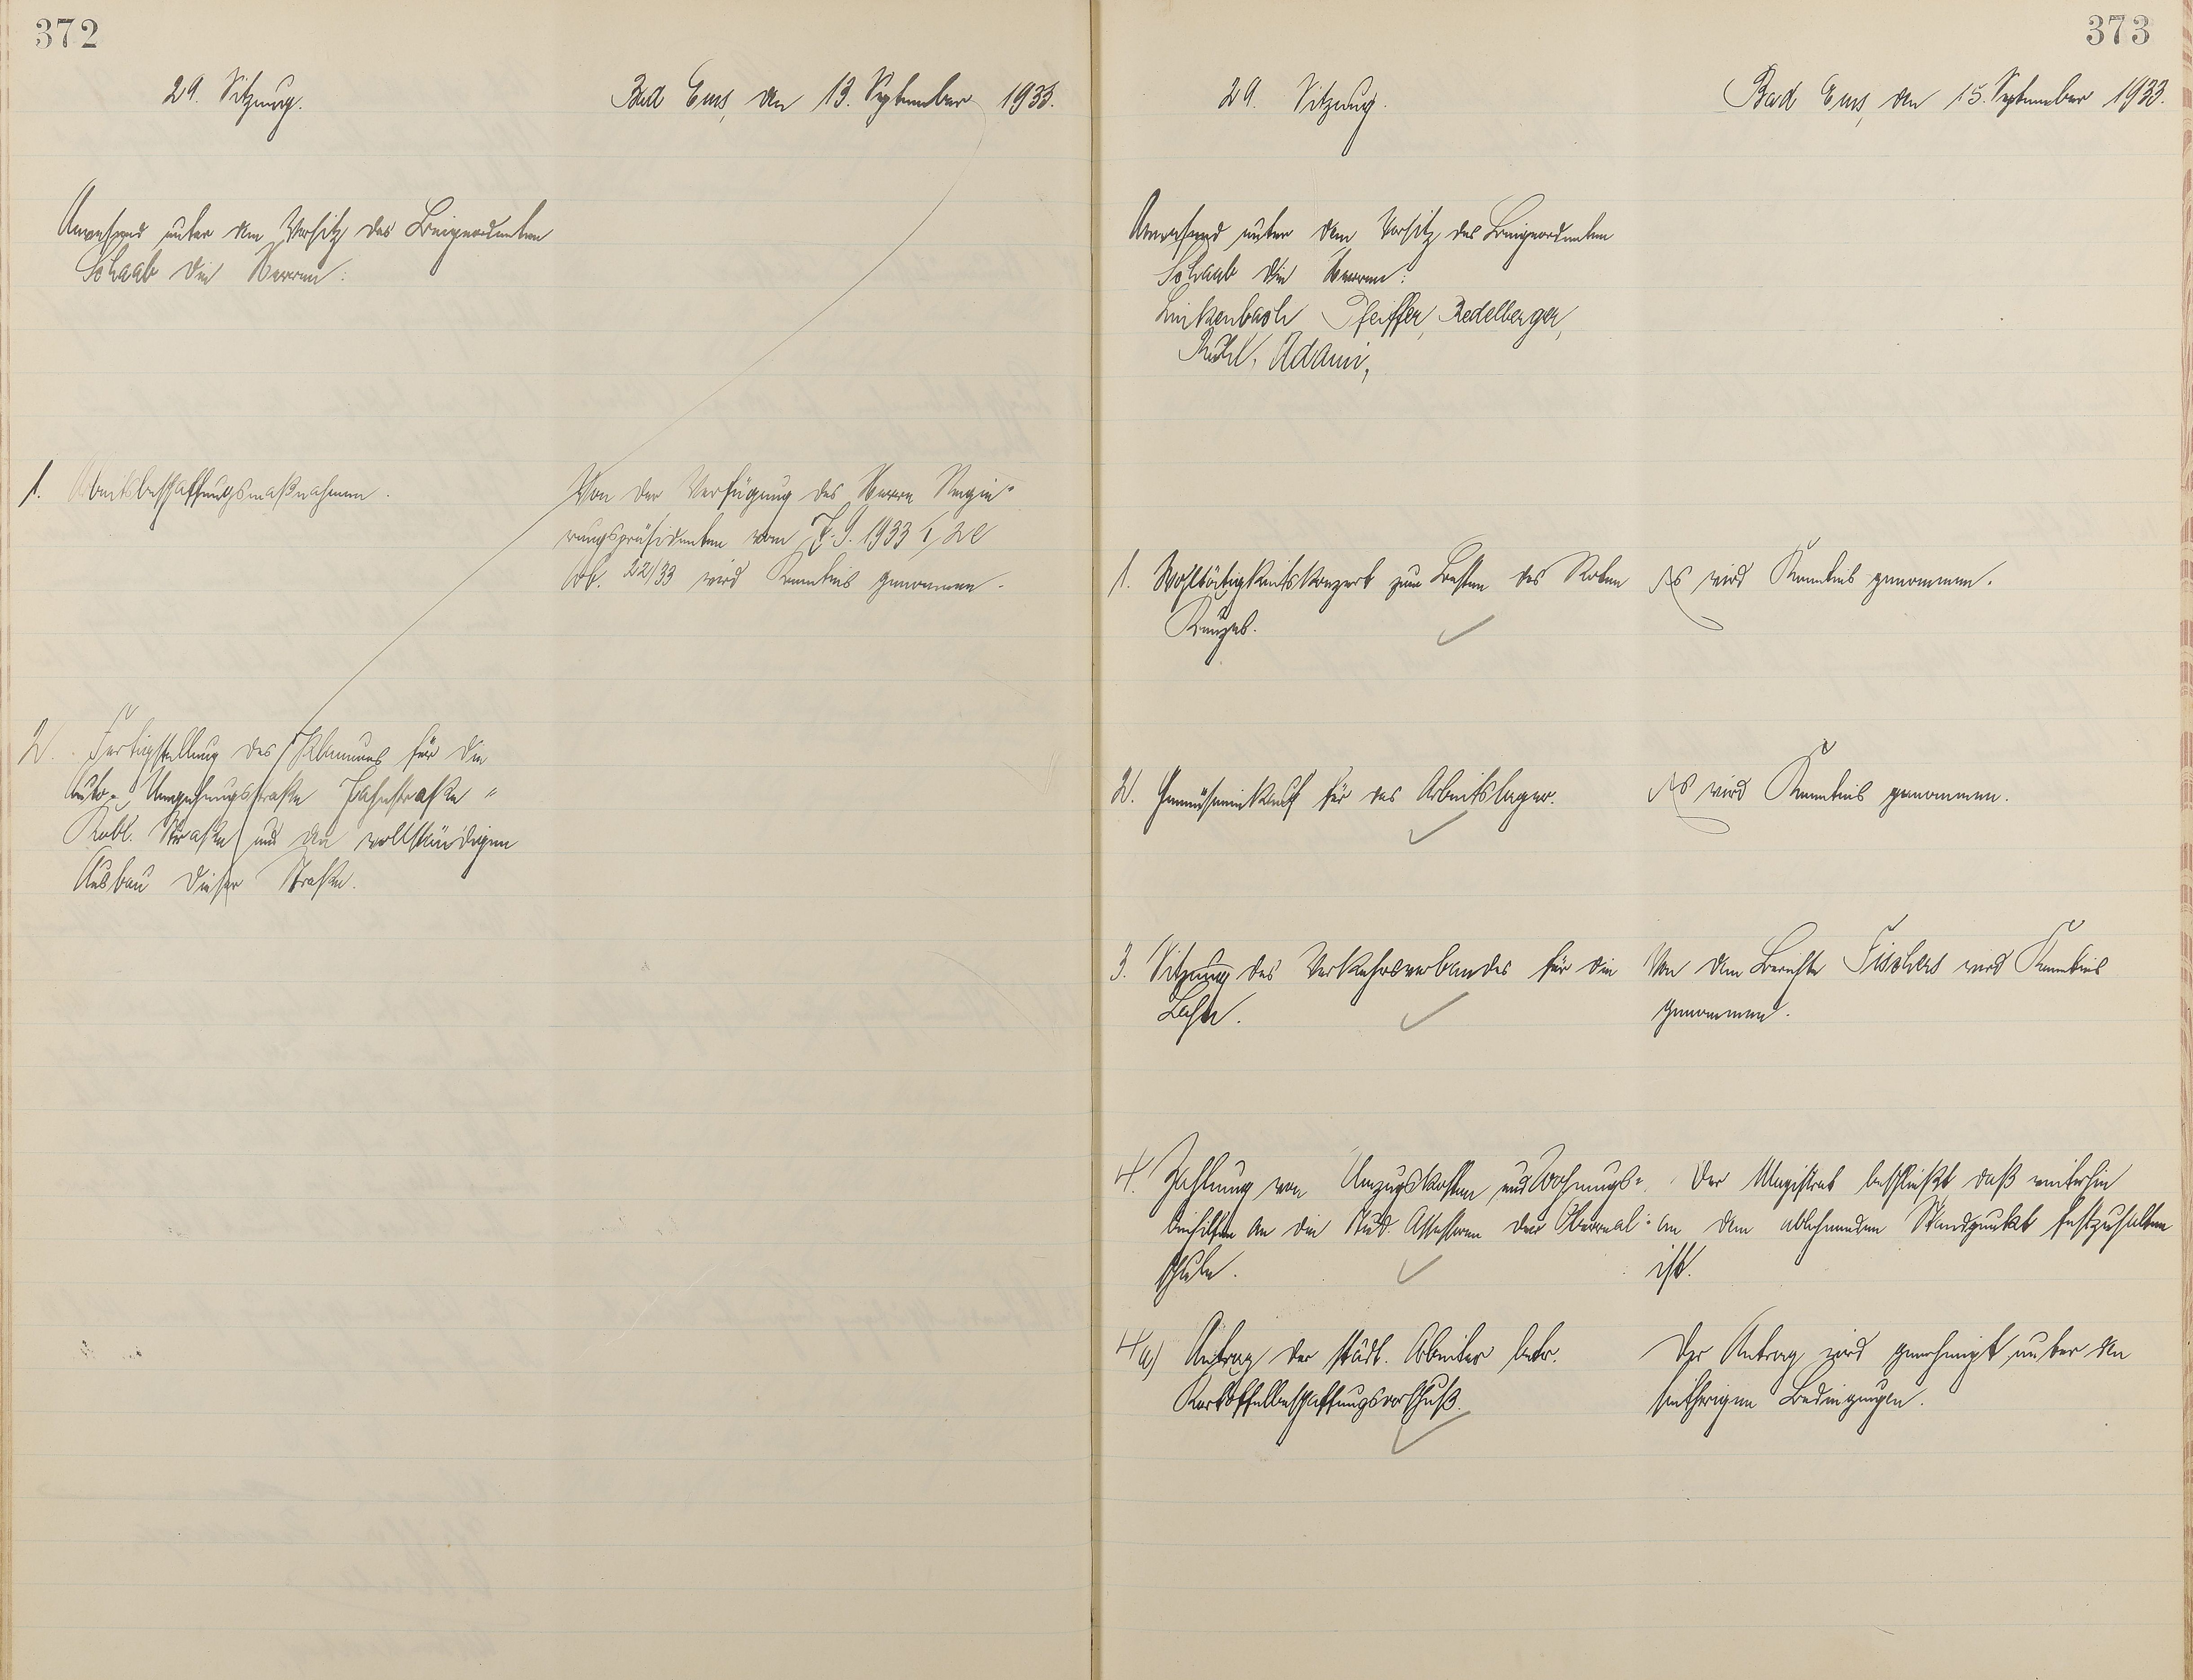 372
29. Sitzung.
Bad Ems, den 13. September 1933.
Anwesend unter dem Vorsitz des Beigeordneten
Schaab die Herren:
1. Arbeitsbeschaffungsmaßnahmen.
Von der Verfügung des Herrn Regie-
rungspräsidenten vom 7.9.1933 I, 2e
22/33 wird Kenntnis genommen.
2. Fertigstellung des Planums für die
Auto-Umgehungsstraße Jahnstraße-
Kobl. Straße und den vollständigen
Ausbau dieser Straße.
373
29. Sitzung.
Bad Ems, den 15. September 1933.
Anwesend unter dem Vorsitz des Beigeordneten
Schaab die Herren:
Linkenbach Pfeiffer, Redelberger,
Rühl, Adami,
1. Wohltätigkeitskonzert zum Besten des Roten
Kreuzes.
Es wird Kenntnis genommen.
2. Gemüseeinkauf für das Arbeitslager.
Es wird Kenntnis genommen.
3. Sitzung des Verkehrsverbandes für die
Lahn.
Von dem Berichte Fischers wird Kenntnis
genommen.
4. Zahlung von Umzugskosten und Wohnungs-
beihilfen an die Stud. Assessoren der Oberreal-
schule.
Der Magistrat beschließt daß weiterhin
an dem ablehnenden Standpunkt festzuhalten
ist.
4a) Antrag der städt. Arbeiter betr.
Kartoffelbeschaffungsvorschuß.
Der Antrag wird genehmigt unter den
seitherigen Bedingungen.